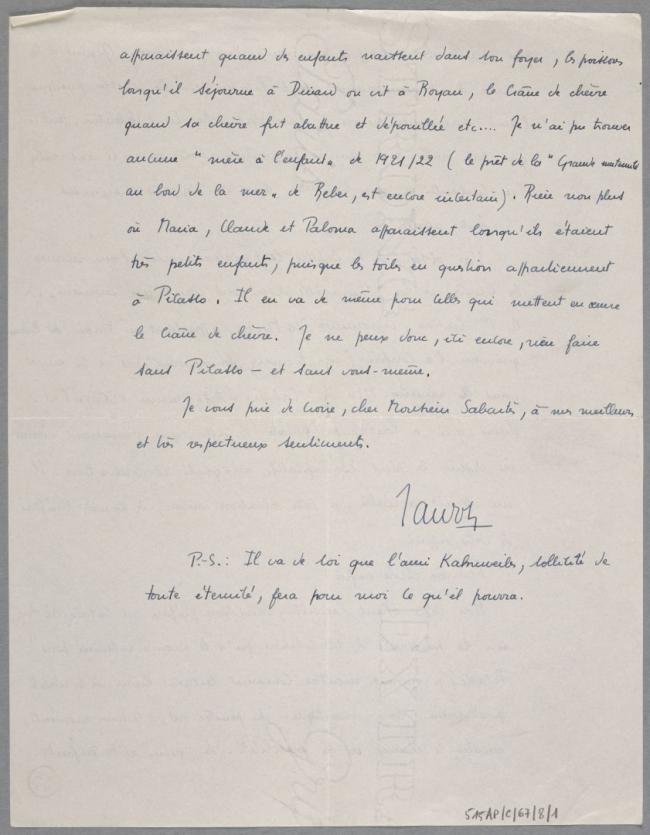 apparaissent quand des enfants naissent dans son foyer, les poissons
lorsqu'il séjourne à Dinard ou vit à Royan, le crâne de chèvre
quand sa chèvre fut abattue et dépouillée etc.... Je n'ai pu trouver
aucune "mère à l'enfant" de 1921/22 (le prêt de la "Grande maternité
au bord de la mer" de Reber, est encore incertain). Rien non plus
où Maria, Claude et Paloma apparaissent lorsqu'ils étaient
très petits enfants, puisque les toiles en question appartiennent
à Picasso. Il en va de même pour celles qui mettent en œuvre
le crâne de chèvre. Je ne peux donc, ici encore, rien faire
sans Picasso — et sans vous-même.
Je vous prie de croire, cher Monsieur Sabartès, à mes meilleurs
et très respectueux sentiments.
P.-S.: Il va de soi que l'ami Kahnweiler, sollicité de
toute éternité, fera pour moi ce qu'il pourra.
515AP/C/67/8/1